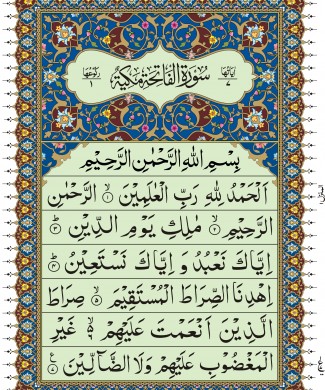 سُوْرَةُ الْفَاتِحَةِ مَكِّيَّةٌ
اٰيَاتُهَا ٧
رُكُوْعُهَا ١
بِسْمِ اللّٰهِ الرَّحْمٰنِ الرَّحِيْمِ
اَلْحَمْدُ لِلّٰهِ رَبِّ الْعٰلَمِيْنَ ١ الرَّحْمٰنِ
الرَّحِيْمِ ٢ مٰلِكِ يَوْمِ الدِّيْنِ ٣
اِيَّاكَ نَعْبُدُ وَ اِيَّاكَ نَسْتَعِيْنُ ٤
اِهْدِنَا الصِّرَاطَ الْمُسْتَقِيْمَ ٥ صِرَاطَ
الَّذِيْنَ اَنْعَمْتَ عَلَيْهِمْ ٦ غَيْرِ
الْمَغْضُوْبِ عَلَيْهِمْ وَلَا الضَّآلِّيْنَ